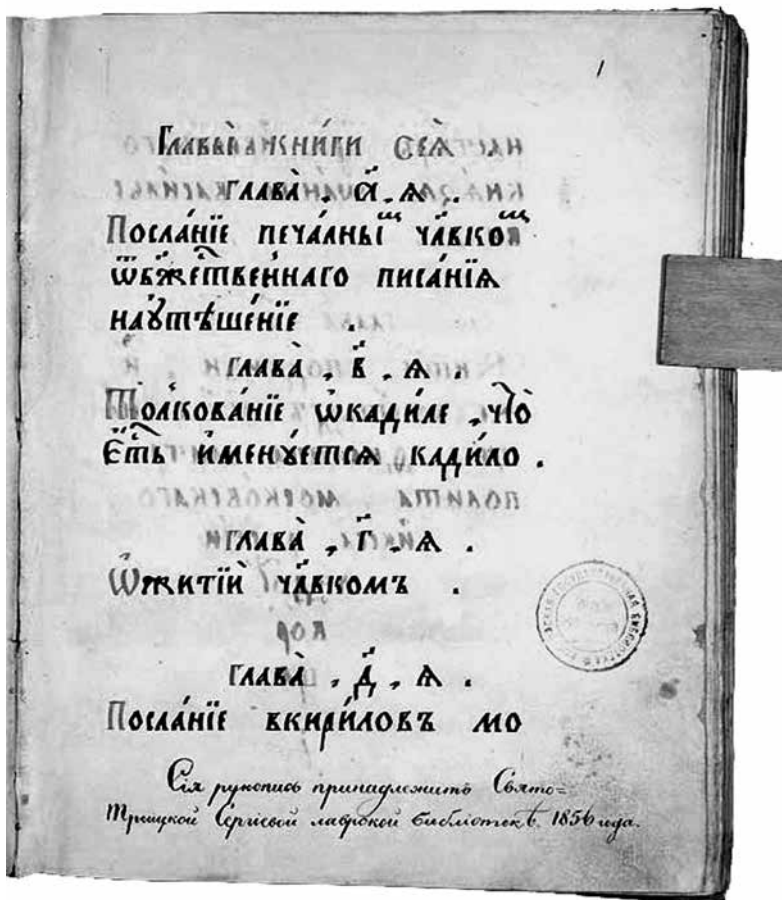 1
Главы̀ кни́ги сеѧ̀
глава̀ . а҃ . ѧ .
Посла́нїе печа́лны чл҃вко
ѿбж҃е́ственнаго писа́нїѧ
наꙋтѣше́нїе .
глава̀ . в҃ . ѧ .
Толкова́нїе ѡкади́ле , что̀
є҆́сть и҆менꙋ́етсѧ кади́ло .
глава̀ . г҃ . ѧ .
Ѡжитїи́ чл҃вкомъ .
глава̀ . д҃ . ѧ .
Посла́нїе вкири́ловъ мо
Сія рукопись принадлежитъ Свято=
Троицкой Сергіевой лаврской библіотекѣ. 1856 года.